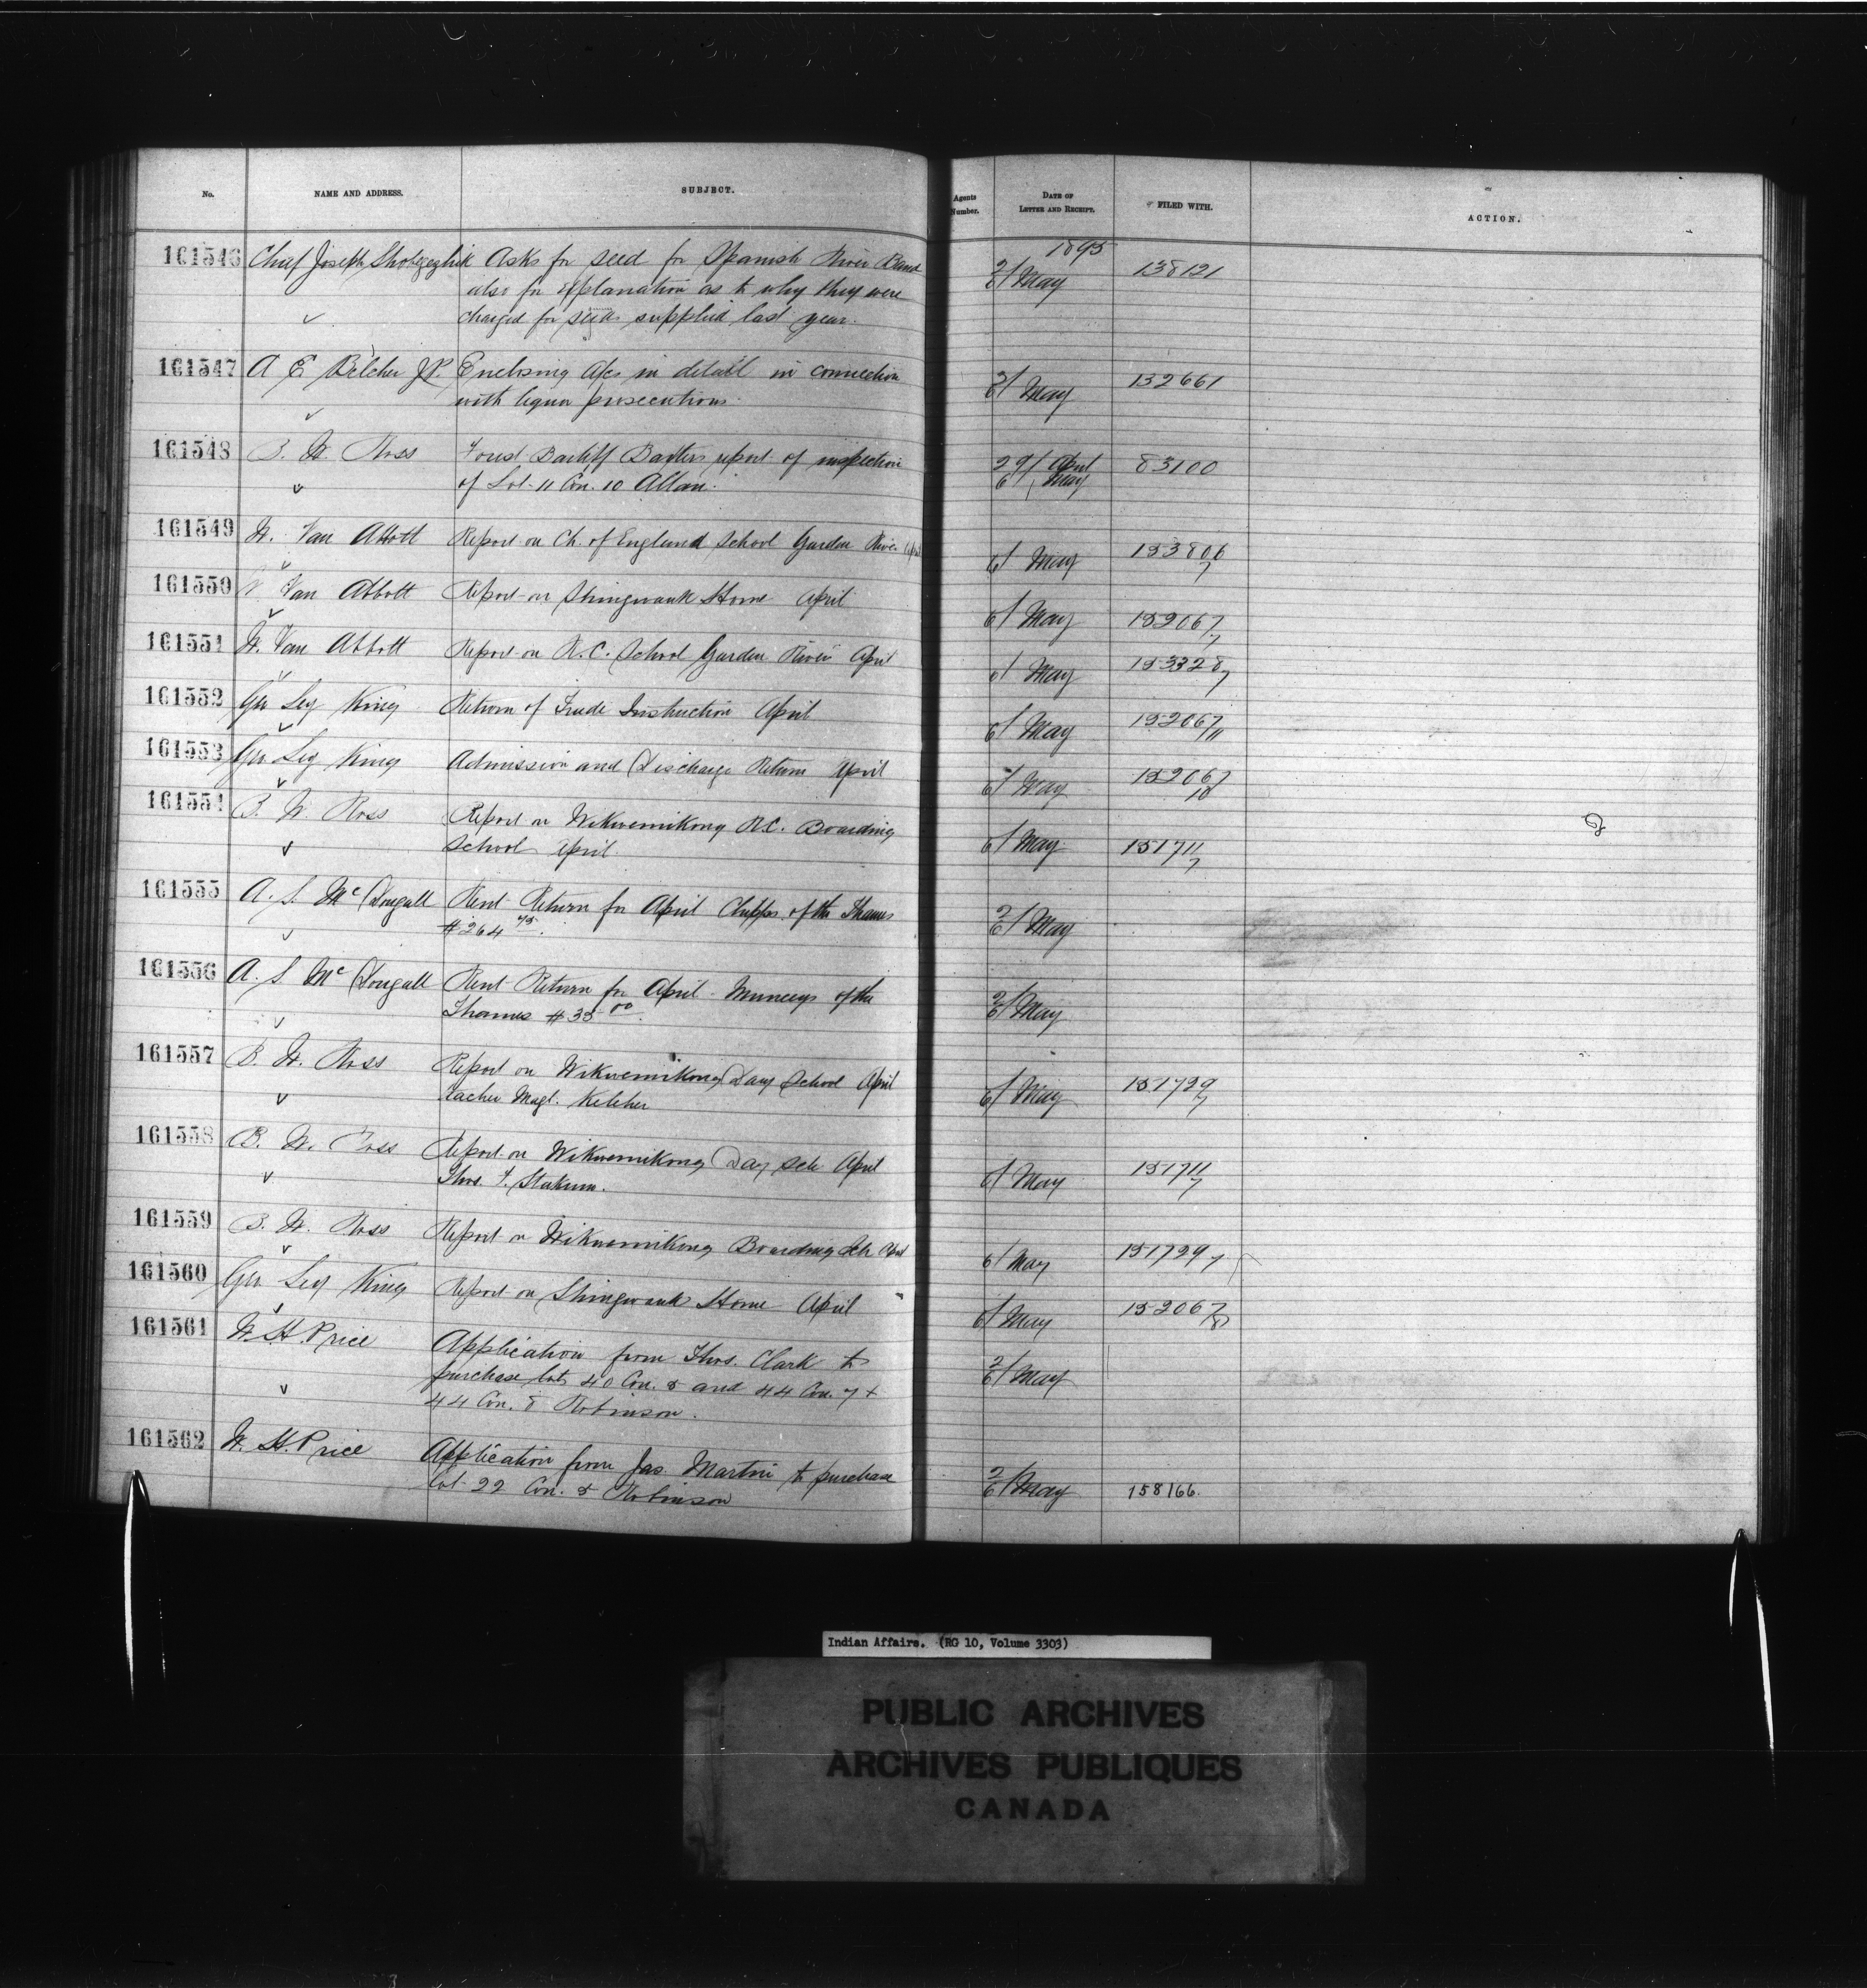 No. NAME AND ADDRESS. SUBJECT. Agents Number. DATE OF LETTER AND RECEIPT. FILED WITH. ACTION.
1895
161546 Chief Joseph Asks for seed for Spanish River Band 2/6 May 138121
also for explanation as to why they were
charged for seeds supplied last year.
161547 A E Belcher JP Enclosing a/cs in detail in connection 3/6 May 132661
with liquor prosecutions.
161548 B. W. Ross Forwd Bailiff Baxters report of inspection 29/ April 83100
of Lot 11 Con. 10 Allan. 6/ May
161549 W. Van Abbott Report on Ch. of England School Garden River April 6/ May 153806/7
161550 W Van Abbott Report on Shingwauk Home April 6/ May 152067/7
161551 W. Van Abbott Report on R.C. School Garden River April 6/ May 153328/7
161552 Geo Ley King Return of Trade Instruction April 6/ May 152067/11
161553 Geo Ley King Admission and Discharge Return April 6/ May 152067/10
161554 B. W. Ross Report on Wikwemikong R.C. Boarding 6/ May 151711/7
School April.
161555 A. S. McDougall Rent Return for April Chipps. of the Thames 2/6 May
$264
161556 A. S. McDougall Rent Return for April Munceys of the 2/6 May
Thames $35 00.
161557 B. W. Ross Report on Wikwemikong Day School April 6/ May 151729/7
teacher Magt. Kelcher
161558 B. W. Ross Report on Wikwemikong Day Sch April 6/ May 151711/7
Thos.
161559 B. W. Ross Report on Wikwemikong Boarding Sch April 6/ May 151729/7
161560 Geo Ley King Report on Shingwauk Home April 6/ May 152067/8
161561 W. H. Price Application from Thos. Clark to 2/6 May
purchase lots 40 Con. 8 and 44 Con. 7 +
44 Con. 8 Robinson.
161562 W. H. Price Application from Jas. Martin to purchase 2/6 May 158166.
Lot 22 Con. 8 Robinson
Indian Affairs. (RG 10, Volume 3303)
PUBLIC ARCHIVES
ARCHIVES PUBLIQUES
CANADA